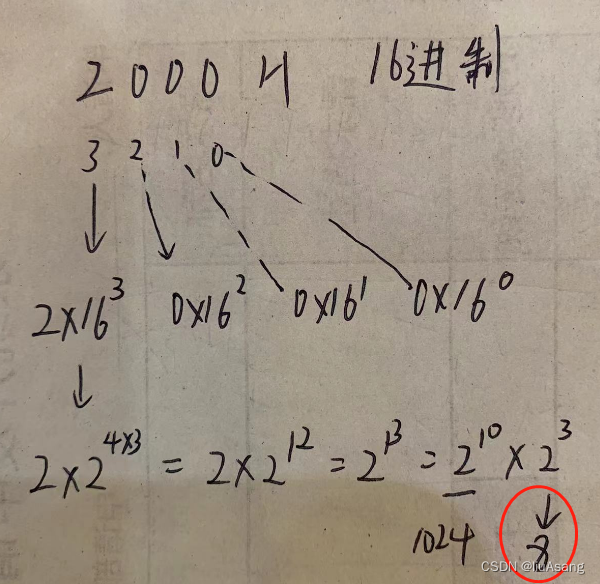 2000H 16进制
3 2 1 0
2×16³ 0×16² 0×16¹ 0×16⁰
2×2⁴ˣ³ = 2×2¹² = 2¹³ = 2¹⁰×2³
1024 8
CSDN @liuAsang